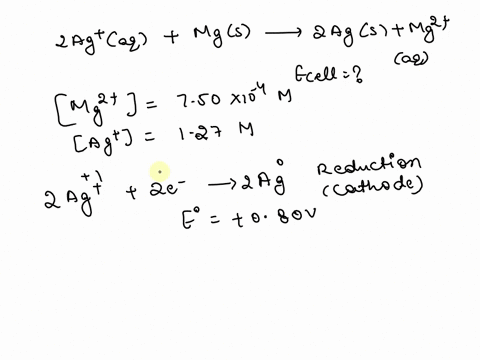 2Ag⁺(aq) + Mg(s) ⟶ 2Ag(s) + Mg²⁺ (aq)
Ecell = ?
[Mg²⁺] = 7.50 ×10⁻⁴ M
[Ag⁺] = 1.27 M
+1 0
2Ag⁺ + 2e⁻ ⟶ 2Ag Reduction
(Cathode)
E° = +0.80V